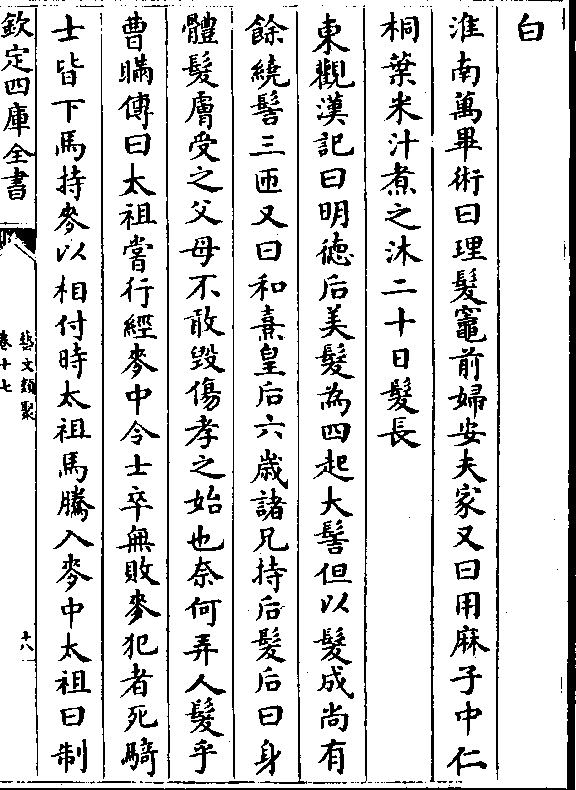 白
淮南萬畢術曰理髮竈前婦安夫家又曰用麻子中仁
桐葉米汁煮之沐二十日髮長
東觀漢記曰明德后美髮為四起大髻但以髮成尚有
餘繞髻三匝又曰和熹皇后六歲諸兄持后髮后曰身
體髮膚受之父母不敢毀傷孝之始也奈何弄人髮乎
曹瞞傳曰太祖嘗行經麥中令士卒無敗麥犯者死騎
士皆下馬持麥以相付時太祖馬騰入麥中太祖曰制
欽定四庫全書
藝文類聚
卷十七
十八